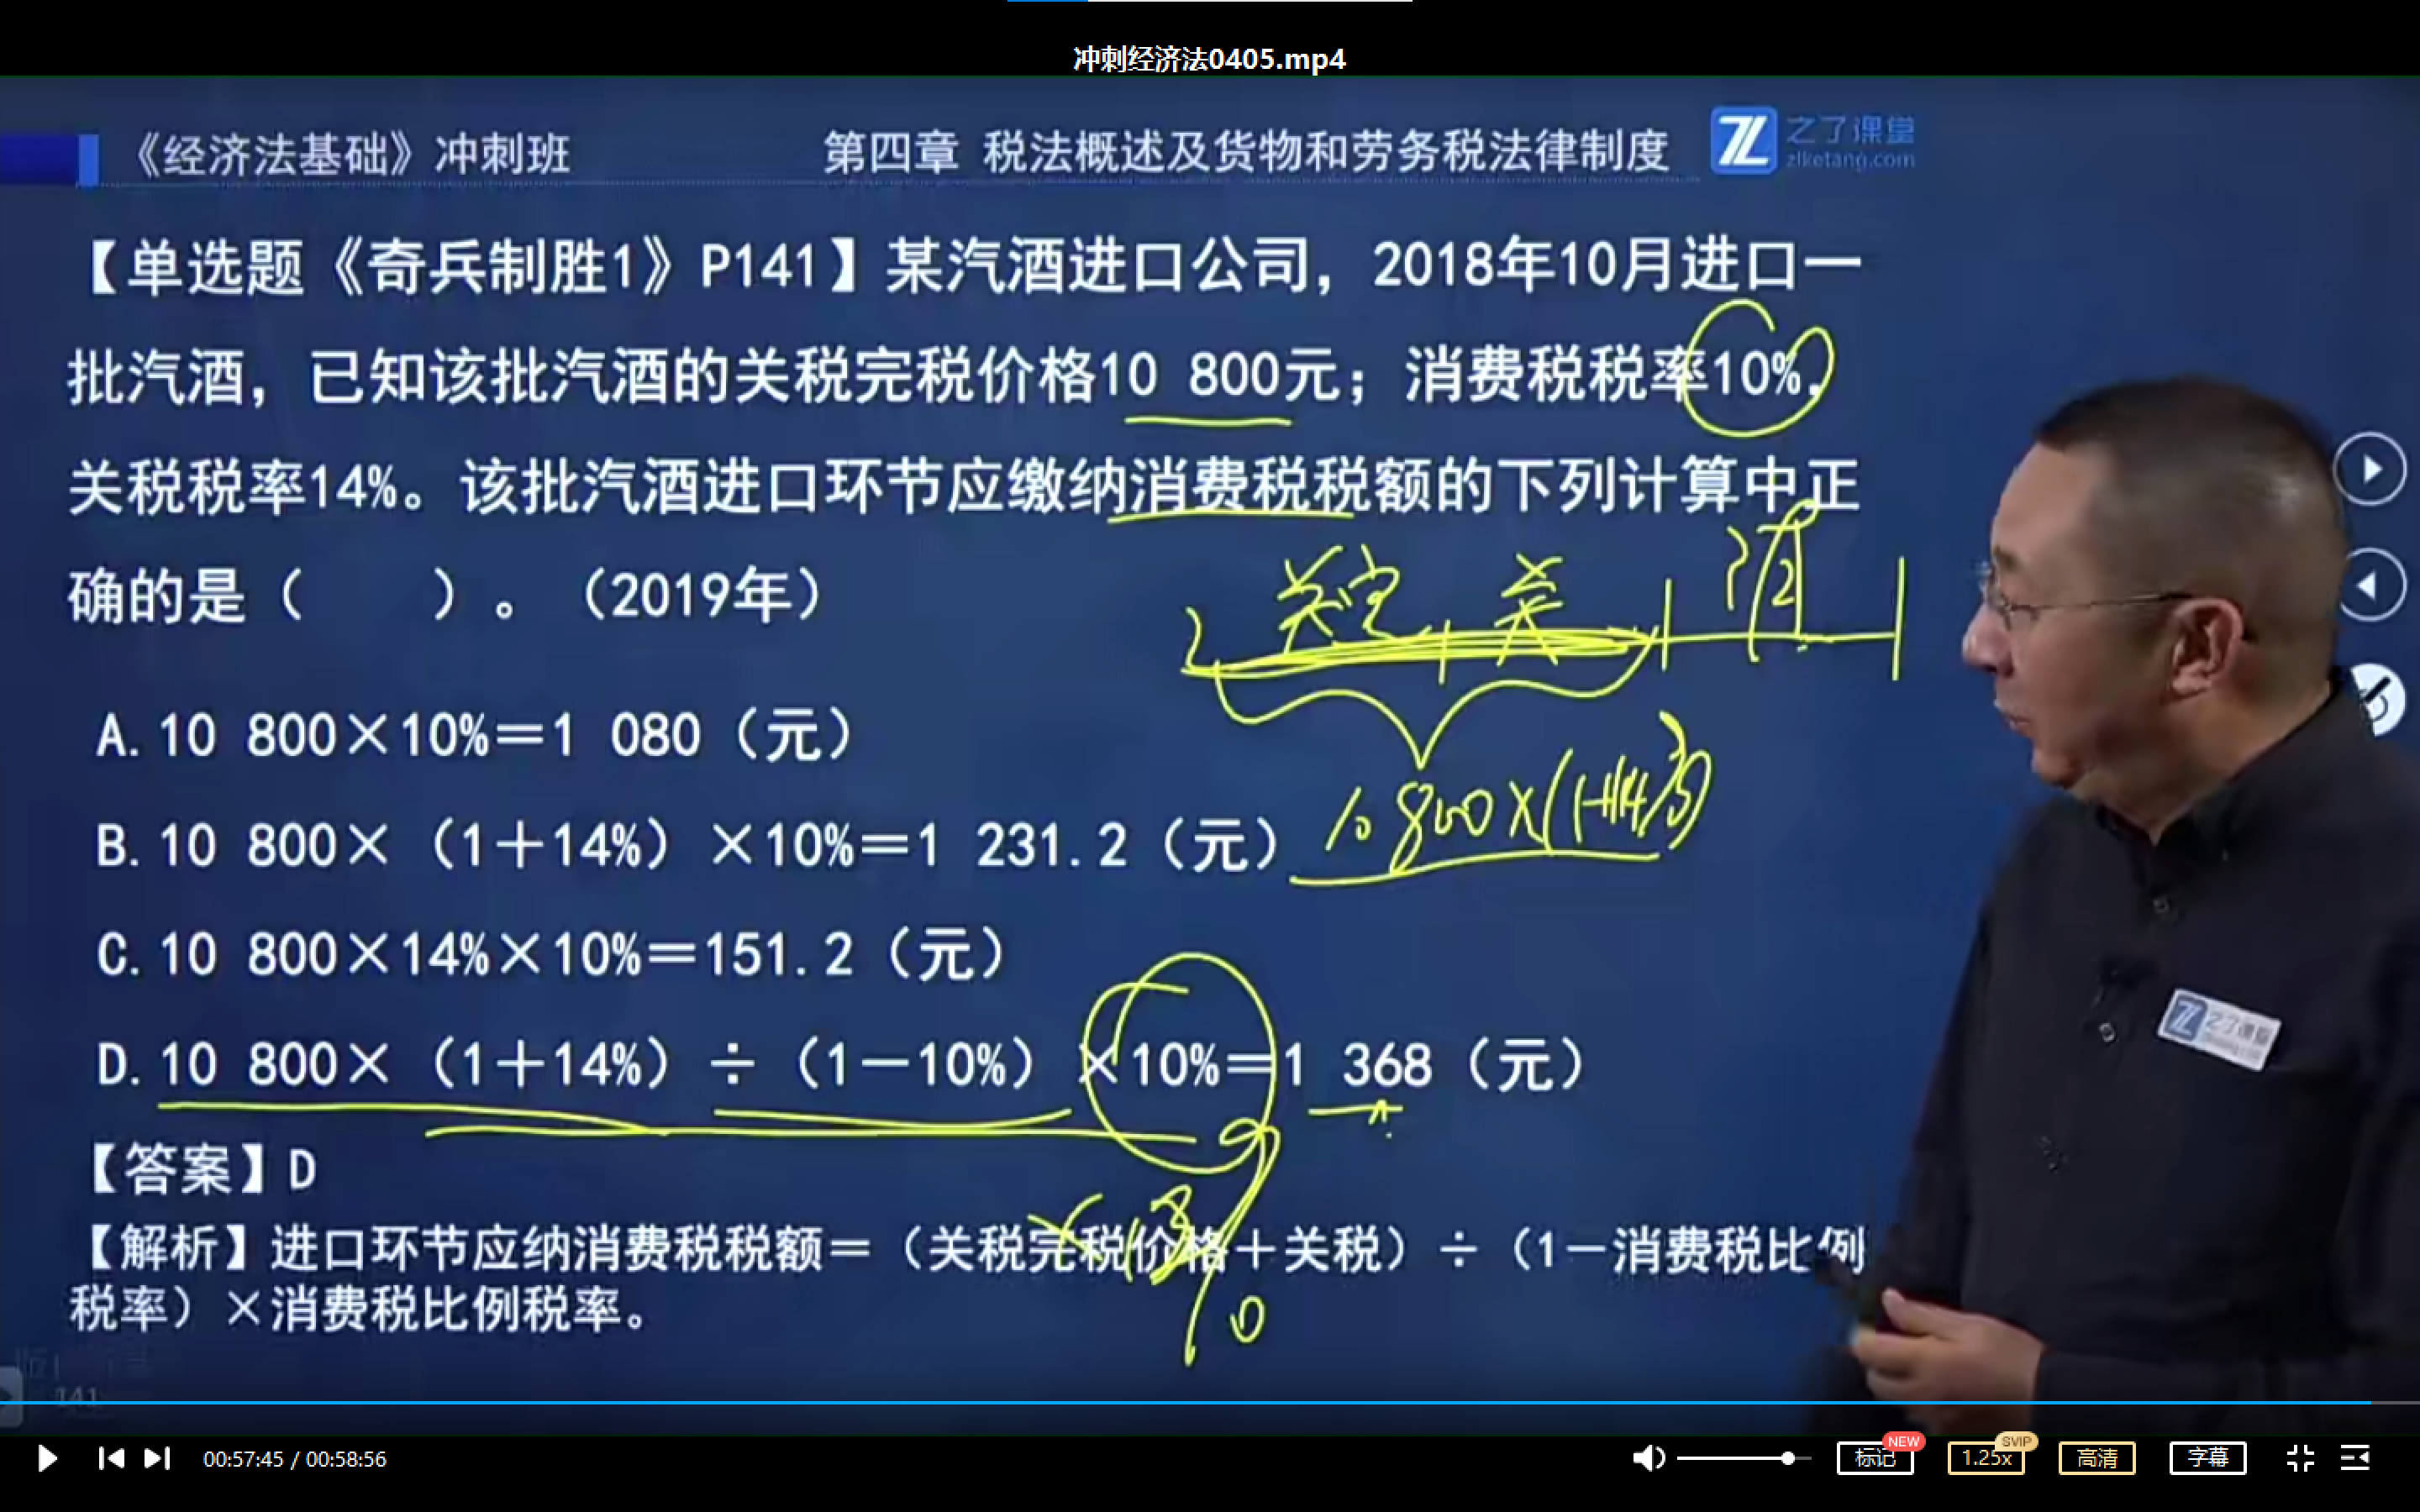 冲刺经济法0405.mp4
《经济法基础》冲刺班 第四章 税法概述及货物和劳务税法律制度 之了课堂
zlketang.com
【单选题《奇兵制胜1》P141】某汽酒进口公司，2018年10月进口一
批汽酒，已知该批汽酒的关税完税价格10 800元；消费税税率10%，
关税税率14%。该批汽酒进口环节应缴纳消费税税额的下列计算中正
确的是（　　）。（2019年）
关完 关 消
A. 10 800×10%＝1 080（元）
10 800×(1+14%)
B. 10 800×（1＋14%）×10%＝1 231.2（元）
C. 10 800×14%×10%＝151.2（元）
D. 10 800×（1＋14%）÷（1－10%）×10%＝1 368（元）
之了课堂
【答案】D
【解析】进口环节应纳消费税税额＝（关税完税价格＋关税）÷（1－消费税比例
税率）×消费税比例税率。
141
00:57:45 / 00:58:56 标记 NEW 1.25x SVIP 高清 字幕